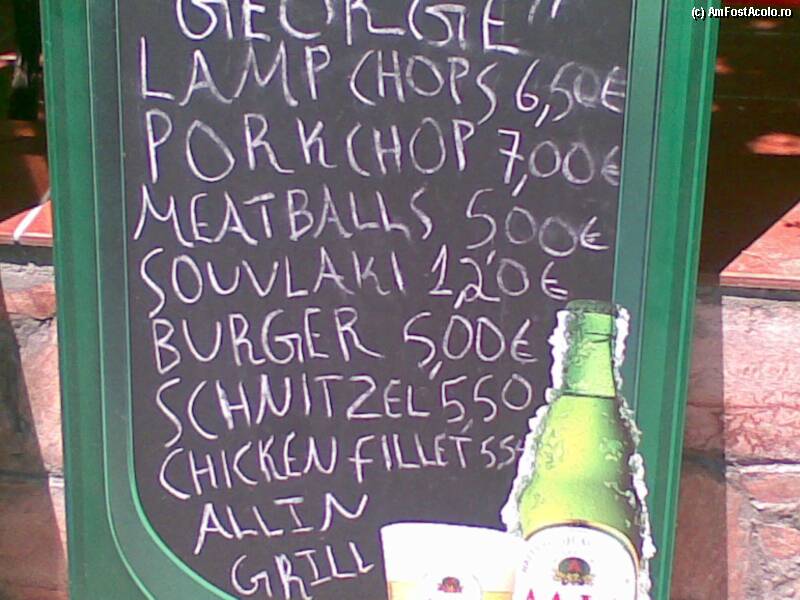 (c) AmFostAcolo.ro
GEORGE"
LAMP CHOPS 6,50€
PORKCHOP 7,00€
MEATBALLS 5,00€
SOUVLAKI 1,20€
BURGER 5,00€
SCHNITZEL 5,50
CHICKEN FILLET 55
ALLIN
GRILL